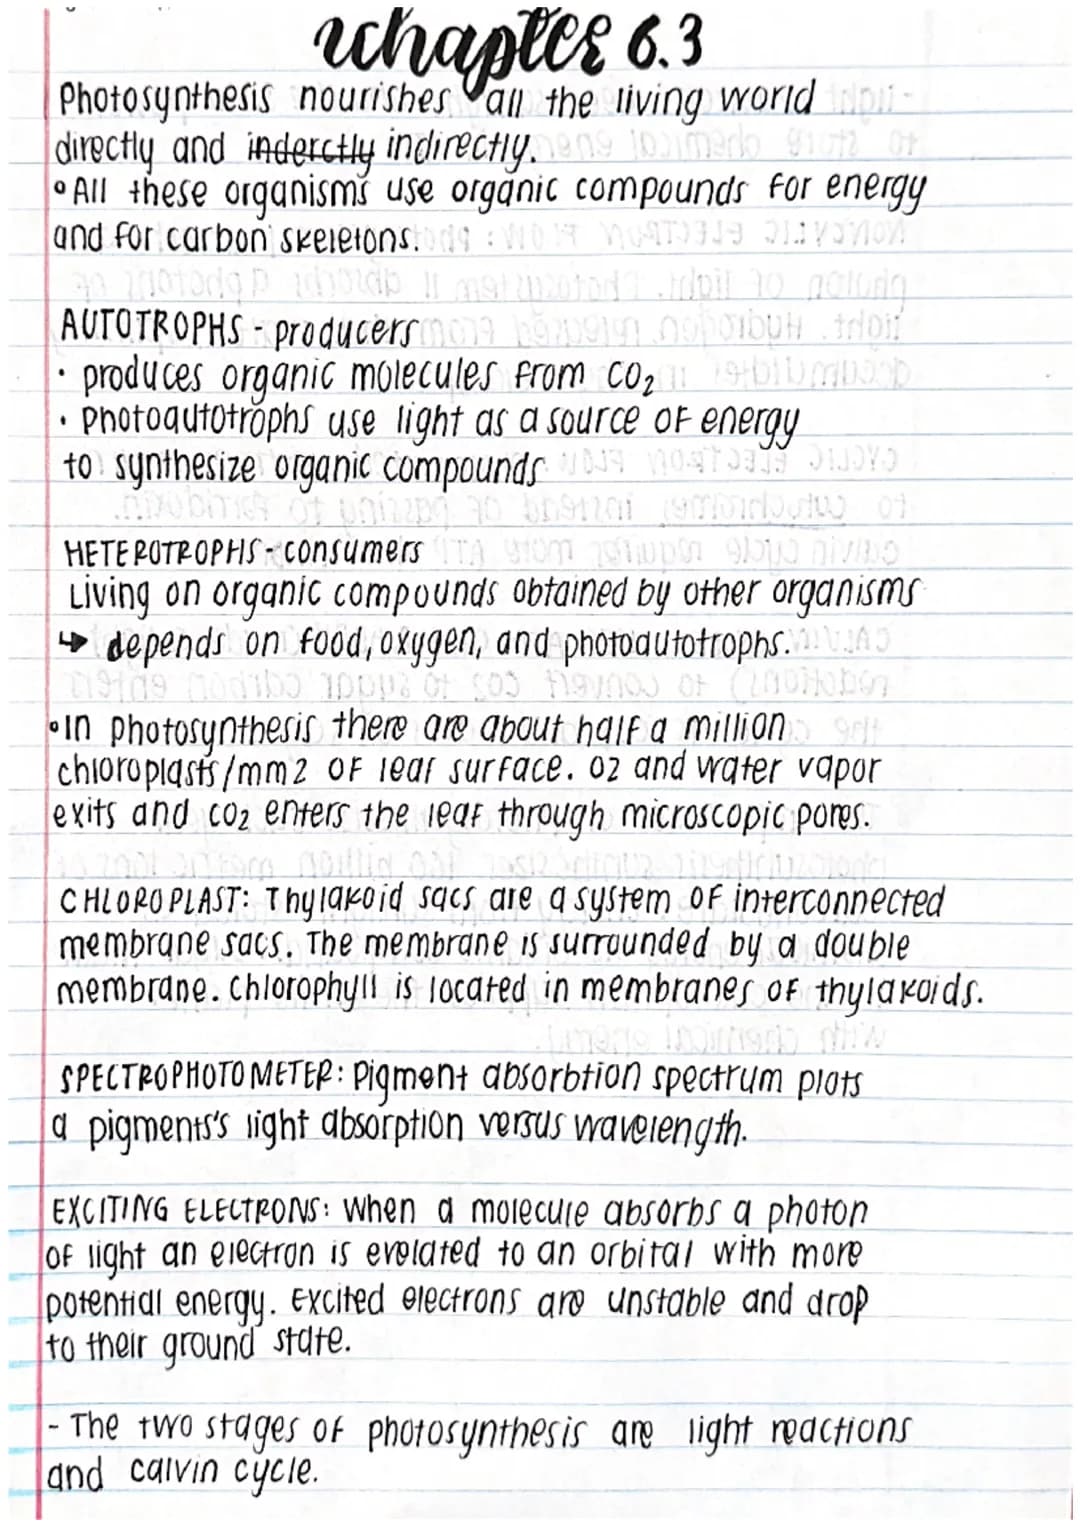 Chapter 6.3
Photosynthesis nourishes all the living world
directly and inderctly indirectly.
• All these organisms use organic compounds for energy
and for carbon skeletons.
AUTOTROPHS - producers
• produces organic molecules from CO₂
• Photoautotrophs use light as a source of energy
to synthesize organic compounds
HETEROTROPHS - consumers
Living on organic compounds obtained by other organisms
↳ depends on food, oxygen, and photoautotrophs.
• In photosynthesis there are about half a million
chloroplasts/mm2 of leaf surface. O2 and water vapor
exits and CO2 enters the leaf through microscopic pores.
CHLOROPLAST: Thylakoid sacs are a system of interconnected
membrane sacs. The membrane is surrounded by a double
membrane. Chlorophyll is located in membranes of thylakoids.
SPECTROPHOTOMETER: Pigment absorbtion spectrum plots
a pigments's light absorption versus wavelength.
EXCITING ELECTRONS: When a molecule absorbs a photon
of light an electron is evelated to an orbital with more
potential energy. Excited electrons are unstable and drop
to their ground state.
- The two stages of photosynthesis are light reactions
and calvin cycle.